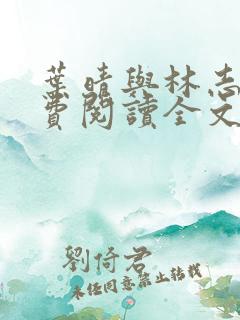 葉晴與林志
費閱讀全文
劉倚君
未經同意禁止轉載